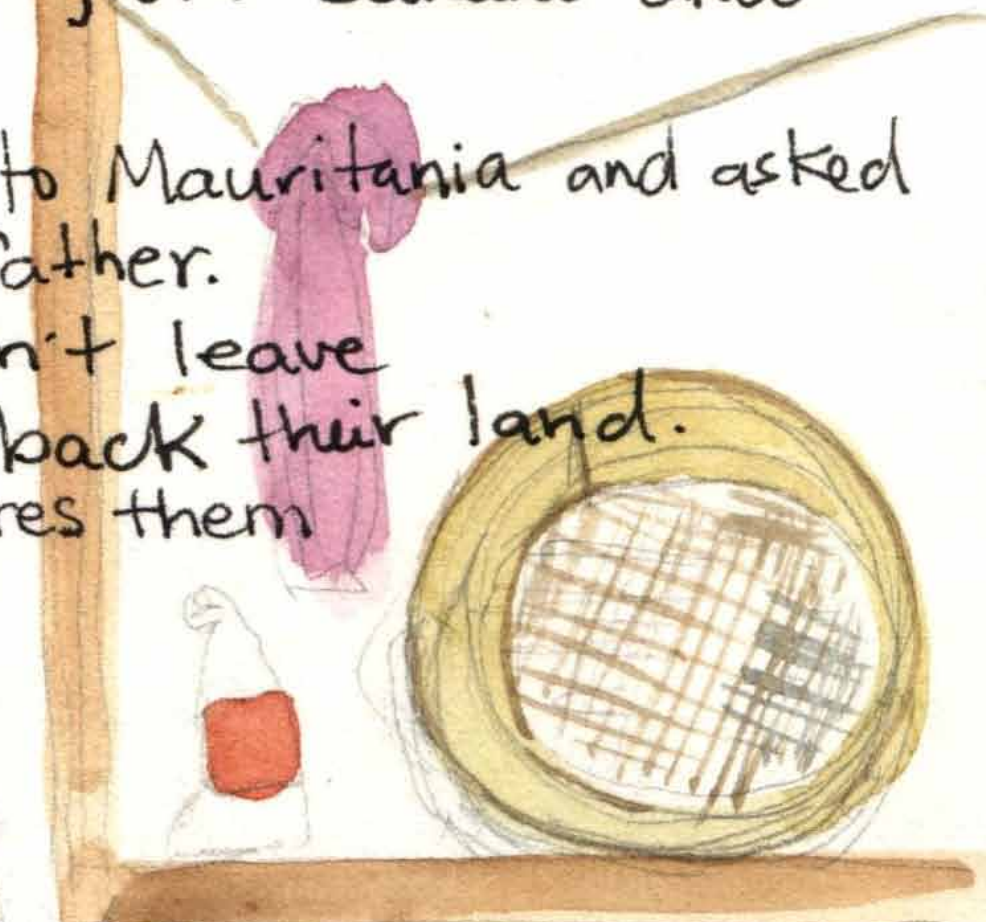 to Mauritania and asked
ather.
n't leave
back their land.
res them